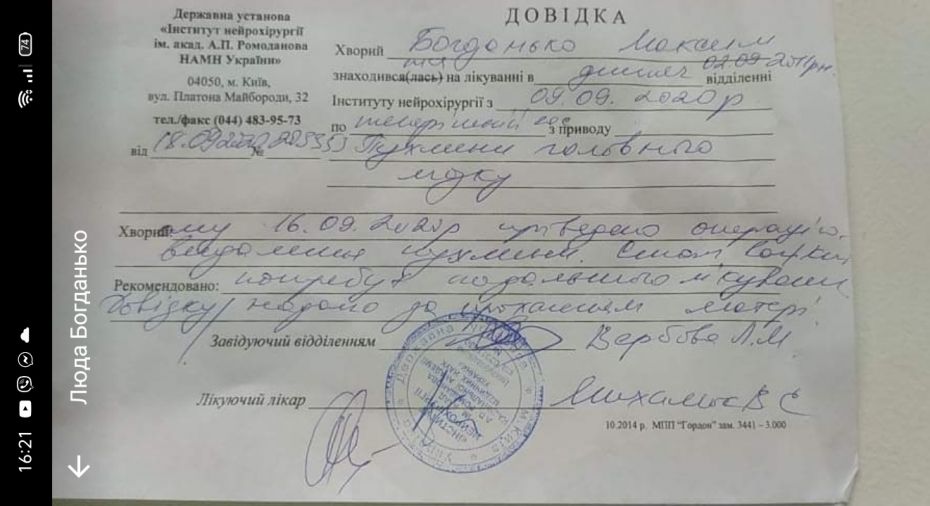 Державна установа
«Інститут нейрохірургії
ім. акад. А.П. Ромоданова
НАМН України»
04050, м. Київ,
вул. Платона Майбороди, 32
тел./факс (044) 483-95-73
від 18.09.2020 №
ДОВІДКА
Хворий Богданько Максим
02.09.2011р.н.
знаходився(лась) на лікуванні в дитяч відділенні
Інституту нейрохірургії з 09.09.2020р
по теперішній час з приводу
Пухлини головного
мозку
Хворий: ому 16.09.2020р проведено операцію
видалення пухлини. Стан важкий
Рекомендовано: потребує подальшого лікування
Довідку надано за проханням матері
Завідуючий відділенням Вербова Л.М.
Лікуючий лікар
10.2014 р. МПП "Гордон" зам. 3441 – 3.000
Люда Богданько
16:21
74